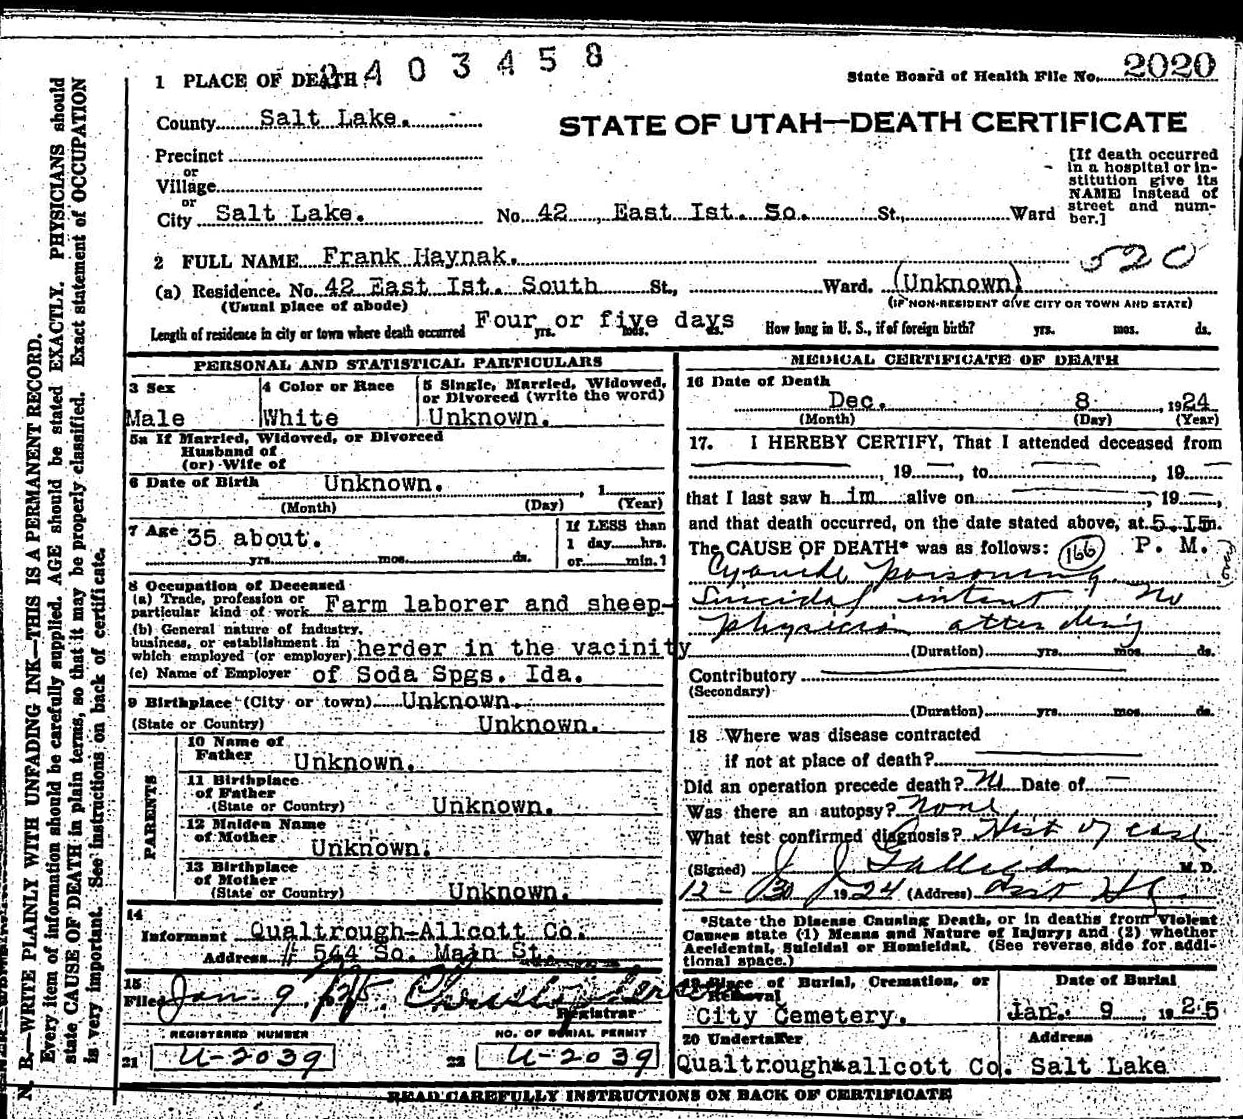 2403458
State Board of Health File No. 2020
1 PLACE OF DEATH
County Salt Lake.
STATE OF UTAH—DEATH CERTIFICATE
Precinct
or
Village
or
City Salt Lake. No. 42 East Ist. So. St., Ward
[If death occurred
in a hospital or in-
stitution give its
NAME instead of
street and num-
ber.]
2 FULL NAME Frank Haynak. 520
(a) Residence. No. 42 East Ist. South St., Ward. (Unknown)
(Usual place of abode) (IF NON-RESIDENT GIVE CITY OR TOWN AND STATE)
Length of residence in city or town where death occurred Four or five days yrs. mos. ds. How long in U. S., if of foreign birth? yrs. mos. ds.
PERSONAL AND STATISTICAL PARTICULARS
3 Sex
Male
4 Color or Race
White
5 Single, Married, Widowed,
or Divorced (write the word)
Unknown.
5a If Married, Widowed, or Divorced
Husband of
(or) Wife of
6 Date of Birth Unknown. , 1
(Month) (Day) (Year)
7 Age 35 about.
yrs. mos. ds.
If LESS than
1 day hrs.
or min.?
8 Occupation of Deceased
(a) Trade, profession or
particular kind of work Farm laborer and sheep-
(b) General nature of industry,
business, or establishment in
which employed (or employer) herder in the vacinity
(c) Name of Employer of Soda Spgs. Ida.
9 Birthplace (City or town) Unknown.
(State or Country) Unknown.
PARENTS
10 Name of
Father Unknown.
11 Birthplace
of Father
(State or Country) Unknown.
12 Maiden Name
of Mother Unknown.
13 Birthplace
of Mother
(State or Country) Unknown.
14
Informant Qualtrough-Allcott Co.
Address # 544 So. Main St.
15
Filed Jan-9, 1925.
Registrar
REGISTERED NUMBER NO. OF BURIAL PERMIT
21 U-2039 22 U-2039
MEDICAL CERTIFICATE OF DEATH
16 Date of Death
Dec. 8 , 1924
(Month) (Day) (Year)
17. I HEREBY CERTIFY, That I attended deceased from
, 19 , to , 19
that I last saw him alive on , 19 ,
and that death occurred, on the date stated above, at 5.15m.
The CAUSE OF DEATH* was as follows: 166 P. M.
Cyanide poisoning
Suicidal intent No
physician attending
(Duration) yrs. mos. ds.
Contributory
(Secondary)
(Duration) yrs. mos. ds.
18 Where was disease contracted
if not at place of death?
Did an operation precede death? No Date of
Was there an autopsy? None
What test confirmed diagnosis? Hist of case
(Signed) J J Galligan M.D.
12-30 1924 (Address)
*State the Disease Causing Death, or in deaths from Violent
Causes state (1) Means and Nature of Injury; and (2) whether
Accidental, Suicidal or Homicidal. (See reverse side for addi-
tional space.)
19 Place of Burial, Cremation, or
Removal
City Cemetery.
Date of Burial
Jan. 9 , 1925
20 Undertaker
Qualtrough&allcott Co.
Address
Salt Lake
READ CAREFULLY INSTRUCTIONS ON BACK OF CERTIFICATE
N. B.—WRITE PLAINLY WITH UNFADING INK—THIS IS A PERMANENT RECORD.
Every item of information should be carefully supplied. AGE should be stated EXACTLY. PHYSICIANS should
state CAUSE OF DEATH in plain terms, so that it may be properly classified. Exact statement of OCCUPATION
is very important. See instructions on back of certificate.